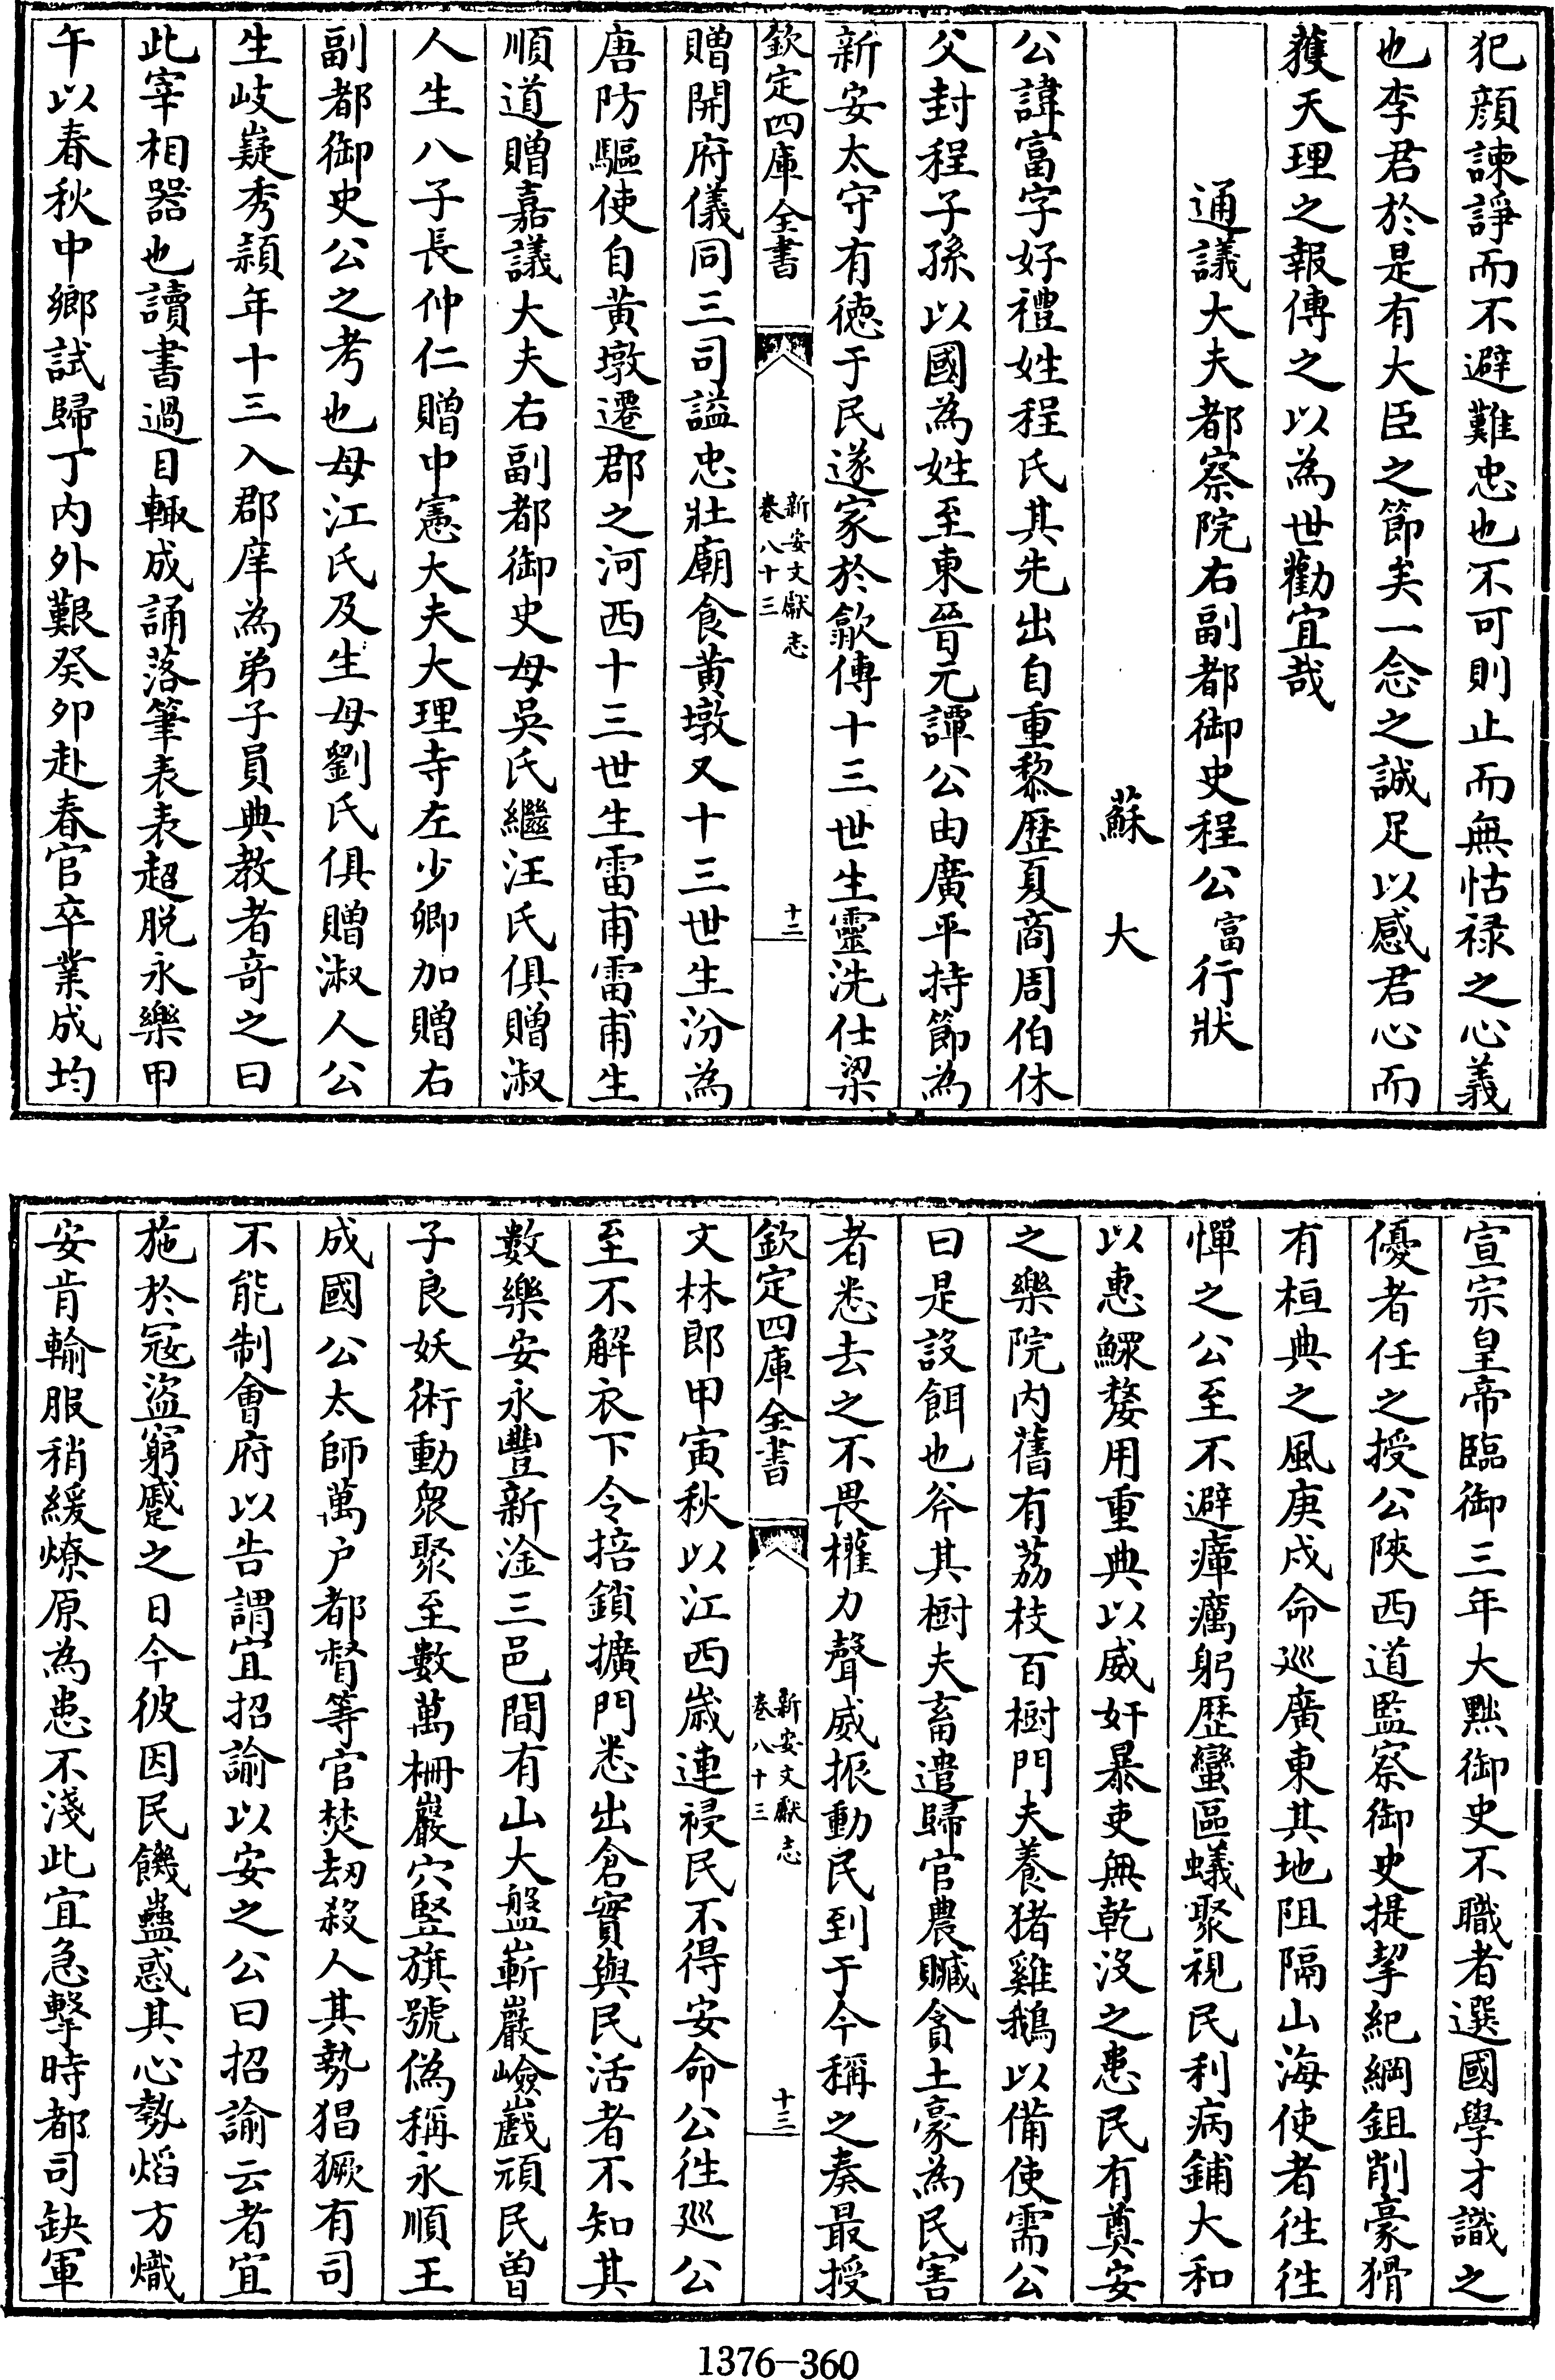 犯顔諫諍而不避難忠也不可則止而無怙禄之心義
也李君於是有大臣之節矣一念之誠足以感君心而
獲天理之報傳之以為世勸宜哉
通議大夫都察院右副都御史程公富行狀
蘇大
公諱富字好禮姓程氏其先出自重黎歴夏商周伯休
父封程子孫以國為姓至東晉元譚公由廣平持節為
新安太守有徳于民遂家於歙傳十三世生靈洗仕梁
欽定四庫全書
新安文獻志
卷八十三
十二
贈開府儀同三司謚忠壯廟食黄墩又十三世生汾為
唐防驅使自黄墩遷郡之河西十三世生雷甫雷甫生
順道贈嘉議大夫右副都御史母吳氏繼汪氏俱贈淑
人生八子長仲仁贈中憲大夫大理寺左少卿加贈右
副都御史公之考也母江氏及生母劉氏俱贈淑人公
生岐嶷秀穎年十三入郡庠為弟子員典教者奇之曰
此宰相器也讀書過目輙成誦落筆表表超脱永樂甲
午以春秋中鄉試歸丁内外艱癸夘赴春官卒業成均
宣宗皇帝臨御三年大黜御史不職者選國學才識之
優者任之授公陜西道監察御史提挈紀綱鉏削豪猾
有桓典之風庚戍命巡廣東其地阻隔山海使者徃徃
憚之公至不避瘴癘躬歴蠻區蟻聚視民利病鋪大和
以惠鰥嫠用重典以威奸暴吏無乾沒之患民有奠安
之樂院内舊有荔枝百樹門夫養猪雞鵝以備使需公
曰是設餌也斧其樹夫畜遣歸官農贓貪土豪為民害
者悉去之不畏權力聲威振動民到于今稱之奏最授
欽定四庫全書
新安文獻志
卷八十三
十三
文林郎甲寅秋以江西歳連祲民不得安命公徃巡公
至不解衣下令掊鎖擴門悉出倉實與民活者不知其
數樂安永豐新淦三邑間有山大盤嶄巖嶮巇頑民曽
子良妖術動衆聚至數萬柵巖穴竪旗號偽稱永順王
成國公太師萬户都督等官焚刼殺人其勢猖獗有司
不能制會府以告謂宜招諭以安之公曰招諭云者宜
施於冦盜窮蹙之日今彼因民饑蠱惑其心勢熖方熾
安肯輸服稍緩燎原為患不淺此宜急擊時都司缺軍
1376-360